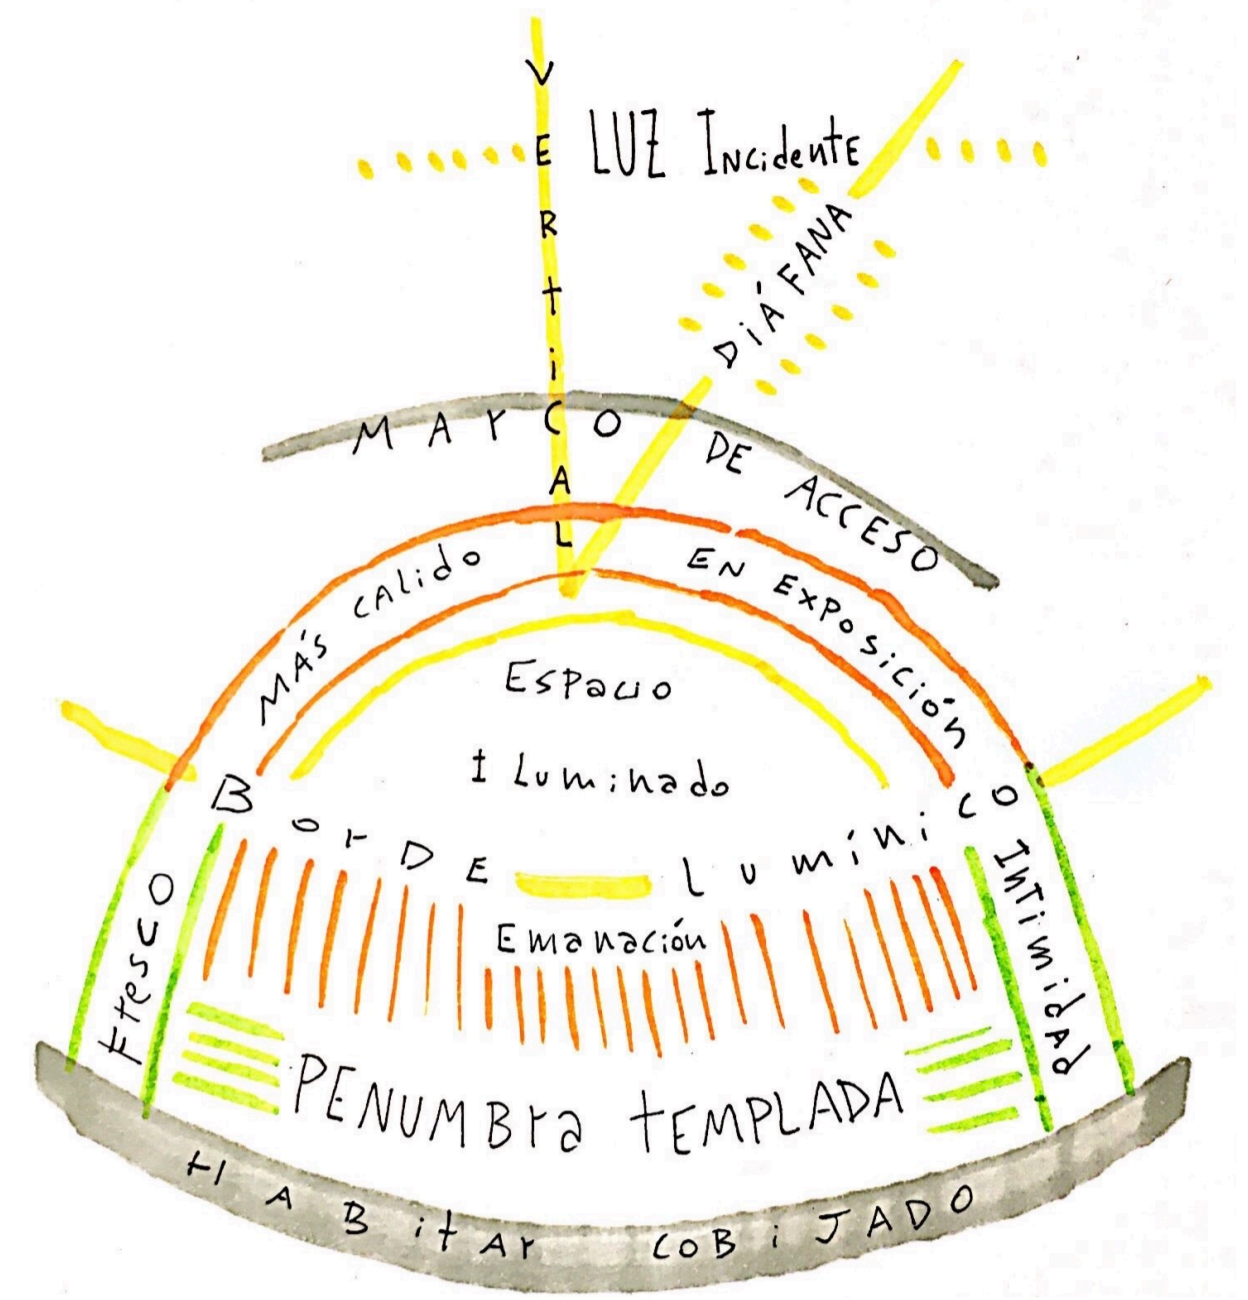 VERtiCAL
LUZ INCidentE
DiÁFANA
MArCO DE ACCESO
MÁS CALido
EN EXPOSiCIÓN
Espacio
ILuminado
BorDE Lumínico
Fresco
Intimidad
Emanación
PENUMBra tEMPLADA
HABitAr COBiJADO